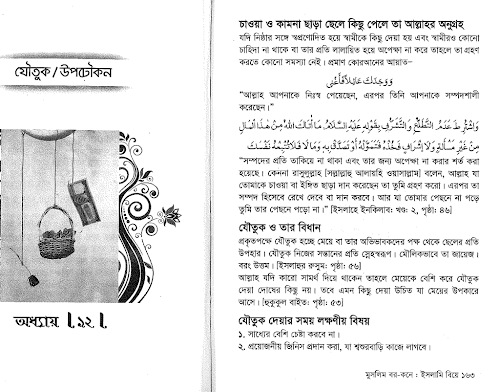 যৌতুক / উপঢৌকন
অধ্যায় ।১২।
চাওয়া ও কামনা ছাড়া ছেলে কিছু পেলে তা আল্লাহর অনুগ্রহ
যদি নিষ্ঠার সঙ্গে স্বপ্রণোদিত হয়ে স্বামীকে কিছু দেয়া হয় এবং স্বামীরও কোনো
চাহিদা না থাকে বা তার প্রতি লালায়িত হয়ে অপেক্ষা না করে তাহলে তা গ্রহণ
করতে কোনো সমস্যা নেই। প্রমাণ কোরআনের আয়াত–
وَوَجَدَكَ عَائِلًا فَأَغْنٰى
"আল্লাহ আপনাকে নিঃস্ব পেয়েছেন, এরপর তিনি আপনাকে সম্পদশালী
করেছেন।"
وَاشْتُرِطَ عَدَمُ التَّطَلُّعِ وَالتَّشَرُّفِ بِقَوْلِهِ عَلَيْهِ السَّلَامُ مَا أَتَاكَ اللهُ مِنْ هٰذَا الْمَالِ
مِنْ غَيْرِ مَسْأَلَةٍ وَلَا إِشْرَافٍ فَخُذْهُ فَتَمَوَّلْهُ أَوْ تَصَدَّقْ بِهِ وَمَا لَا فَلَا تُتْبِعْهُ نَفْسَكَ
"সম্পদের প্রতি তাকিয়ে না থাকা এবং তার জন্য অপেক্ষা না করার শর্ত করা
হয়েছে। কেননা রাসুলুল্লাহ [সল্লাল্লাহু আলায়হি ওয়াসাল্লাম] বলেন, আল্লাহ যা
তোমাকে চাওয়া বা ইঙ্গিত ছাড়া দান করেছেন তা তুমি গ্রহণ করো। এরপর তা
সম্পদ হিসেবে রেখে দেবে বা দান করবে। আর যা তোমার পেছনে না পড়ে
তুমি তার পেছনে পড়ো না।" [ইসলাহে ইনকিলাব: খণ্ড: ২, পৃষ্ঠা: ৪৬]
যৌতুক ও তার বিধান
প্রকৃতপক্ষে যৌতুক হচ্ছে মেয়ে বা তার অভিভাবকদের পক্ষ থেকে ছেলের প্রতি
উপহার। যৌতুক নিজের সন্তানের প্রতি স্নেহস্বরূপ। মৌলিকভাবে তা জায়েজ।
বরং উত্তম। [ইসলাহুর রুসুম: পৃষ্ঠা: ৫৬]
আল্লাহ যদি কারো সামর্থ দিয়ে থাকেন তাহলে মেয়েকে বেশি করে যৌতুক
দেয়া দোষের কিছু নয়। তবে এমন কিছু দেয়া উচিত যা মেয়ের উপকারে
আসে। [হুকুকুল বাইত: পৃষ্ঠা: ৫৩]
যৌতুক দেয়ার সময় লক্ষণীয় বিষয়
১. সাধ্যের বেশি চেষ্টা করবে না।
২. প্রয়োজনীয় জিনিস প্রদান করা, যা শ্বশুরবাড়ি কাজে লাগবে।
মুসলিম বর-কনে : ইসলামি বিয়ে ১৬৩